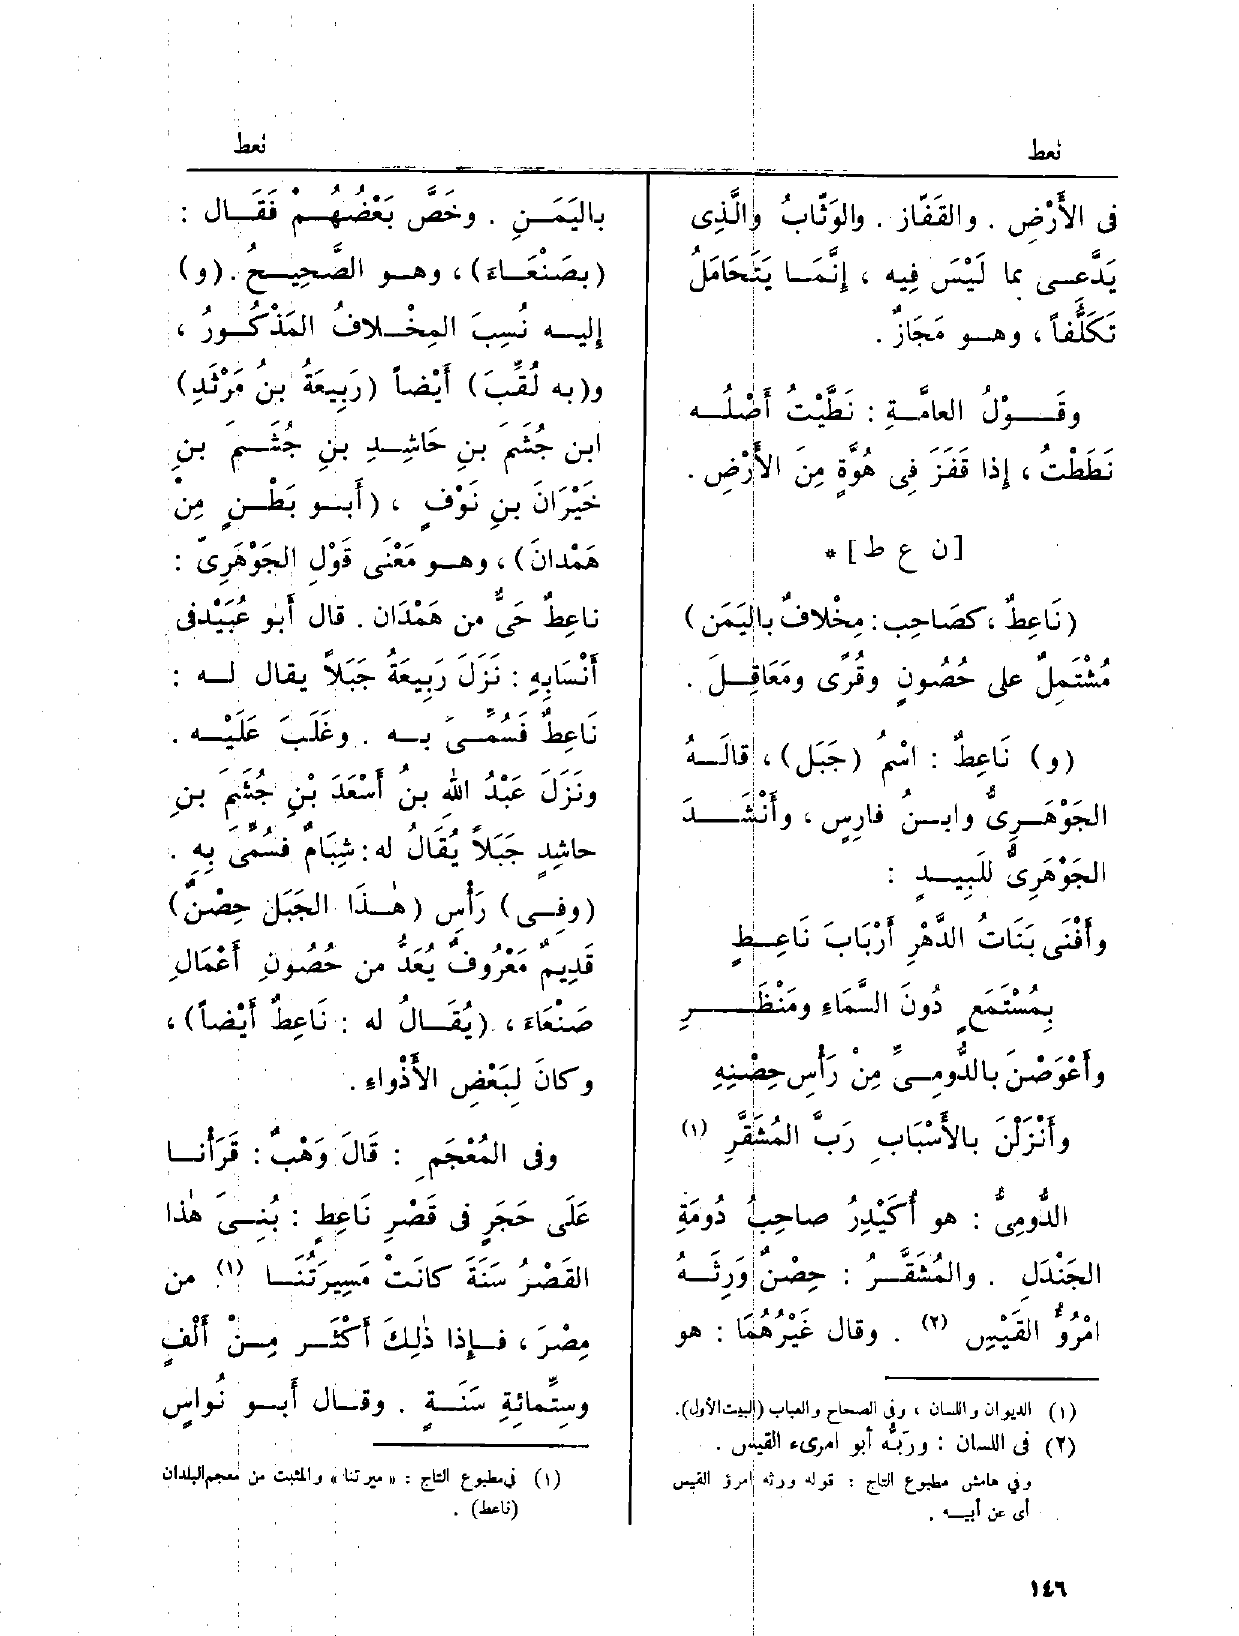 نعط
فى الأَرْضِ . والقَفّاز . والوَثّابُ والَّذِى
يَدَّعــى بما لَيْسَ فِيه ، إِنَّمَــا يَتَحَامَلُ
تَكَلُّفاً ، وهــو مَجَازٌ .
وقَــوْلُ العامَّــةِ : نَطَّيْتُ أَصْلُــه
نَطَطْتُ ، إِذا قَفَزَ فِى هُوَّةٍ مِنَ الأَرْضِ .
[ن ع ط] *
(نَاعِطٌ ، كصَاحِب : مِخْلافٌ بالْيَمَنِ)
مُشْتَمِلٌ على حُصُونٍ وقُرًى ومَعَاقِــلَ .
(و) نَاعِطٌ : اسْمُ (جَبَل) ، قالَــهُ
الجَوْهَــرِىُّ وابــنُ فارِس ، وأَنْشَــدَ
الجَوْهَرِىُّ لِلَبِيــدٍ :
وأَفْنَى بَنَاتُ الدَّهْرِ أَرْبَابَ نَاعِــطٍ
بِمُسْتَمَعٍ دُونَ السَّمَاءِ ومَنْظَــرِ
وأَعْوَصْنَ بالدُّومِــىِّ مِنْ رَأْسِ حِصْنِهِ
وأَنْزَلْنَ بالأَسْبَابِ رَبَّ المُشَقَّرِ (١)
الدُّومِىُّ : هو أُكَيْدِرُ صاحِبُ دُومَةِ
الجَنْدَلِ . والمُشَقَّــرُ : حِصْنٌ وَرِثَــهُ
امْرُؤُ القَيْسِ (٢) . وقال غَيْرُهُمَا : هو
(١) الديوان واللسان ، وفى الصحاح والعباب (البيت الأول).
(٢) فى اللسان : وربَّه أبو امرىء القيس .
وفى هامش مطبوع التاج : قوله ورثه امرؤ القيس
أى عن أبيــه .
١٤٦
نعط
بالْيَمَــنِ . وخَصَّ بَعْضُهُــمْ فَقَــال :
(بِصَنْعَــاءَ) ، وهــو الصَّحِيــحُ . (و)
إِليــه نُسِبَ المِخْــلافُ المَذْكُــورُ ،
و(به لُقِّبَ) أَيْضاً (رَبِيعَةُ بنُ مَرْثَدِ)
ابن جُشَمَ بنِ حَاشِــدِ بنِ جُشَــمَ بنِ
خَيْرَانَ بنِ نَوْفٍ ، (أَبــو بَطْــنٍ مِنْ
هَمْدانَ) ، وهــو مَعْنَى قَوْلِ الجَوْهَرِىّ :
ناعِطٌ حَىٌّ من هَمْدَان . قال أَبو عُبَيْدفى
أَنْسَابِهِ : نَزَلَ رَبِيعَةُ جَبَلاً يقال لــه :
نَاعِطٌ فَسُمِّــىَ بــه . وغَلَبَ عَلَيْــه .
ونَزَلَ عَبْدُ اللهِ بنُ أَسْعَدَ بْنِ جُشَمَ بنِ
حاشِدٍ جَبَلاً يُقَالُ له : شِبَامٌ فَسُمِّىَ بِهِ .
(وفــى) رَأْسِ (هٰــذَا الجَبَلِ حِصْنٌ)
قَدِيمٌ مَعْرُوفٌ يُعَدُّ من حُصُونِ أَعْمَالِ
صَنْعَاءَ ، (يُقَــالُ له : نَاعِطٌ أَيْضاً) ،
وكانَ لِبَعْضِ الأَذْواءِ .
وفى المُعْجَمِ : قَالَ وَهْبٌ : قَرَأْنــا
عَلَى حَجَرٍ فى قَصْرِ نَاعِطٍ : بُنِــىَ هٰذا
القَصْرُ سَنَةَ كانَتْ مَسِيرَتُنَــا (١) من
مِصْرَ ، فــإِذا ذٰلِكَ أَكْثَــر مِــنْ أَلْفٍ
وسِتِّمائةِ سَنَــةٍ . وقــال أَبــو نُواسٍ
(١) فى مطبوع التاج : «ميرتنا» والمثبت من معجم البلدان
(ناعط) .